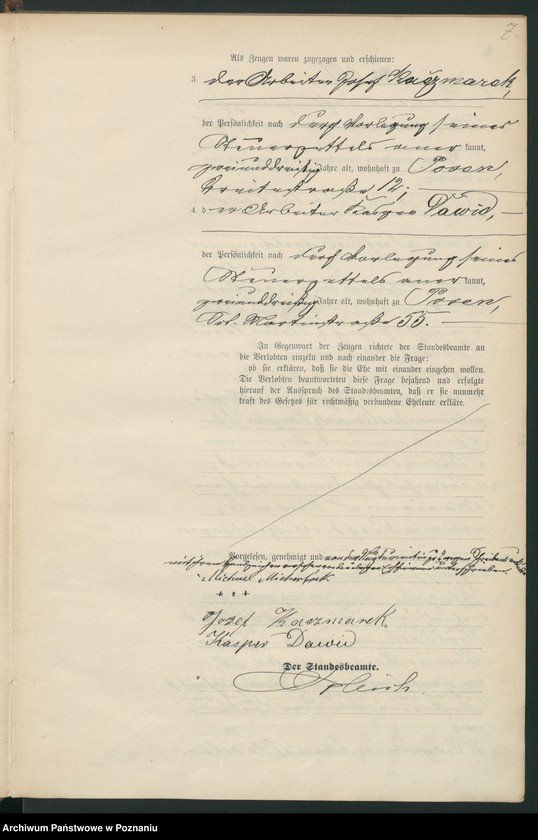 7.
Als Zeugen waren zugezogen und erschienen:
3. der Arbeiter Josef Kaczmarek,
der Persönlichkeit nach durch Vorlegung seines
Steuerzettels aner kannt,
zweiunddreißig Jahre alt, wohnhaft zu Posen,
Breitestraße 12;
4. der Arbeiter Kasper Dawid,
der Persönlichkeit nach durch Vorlegung seines
Steuerzettels aner kannt,
zweiunddreißig Jahre alt, wohnhaft zu Posen,
Skt. Martinstraße 55.
In Gegenwart der Zeugen richtete der Standesbeamte an
die Verlobten einzeln und nach einander die Frage:
ob sie erklären, daß sie die Ehe mit einander eingehen wollen.
Die Verlobten beantworteten diese Frage bejahend und erfolgte
hierauf der Ausspruch des Standesbeamten, daß er sie nunmehr
kraft des Gesetzes für rechtmäßig verbundene Eheleute erkläre.
Vorgelesen, genehmigt und von der wegen Schreibens
mit ihrem Handzeichen unterschrieben.
Michael
+ + +
Jozef Kaczmarek
Kasper Dawid
Der Standesbeamte.
Archiwum Państwowe w Poznaniu